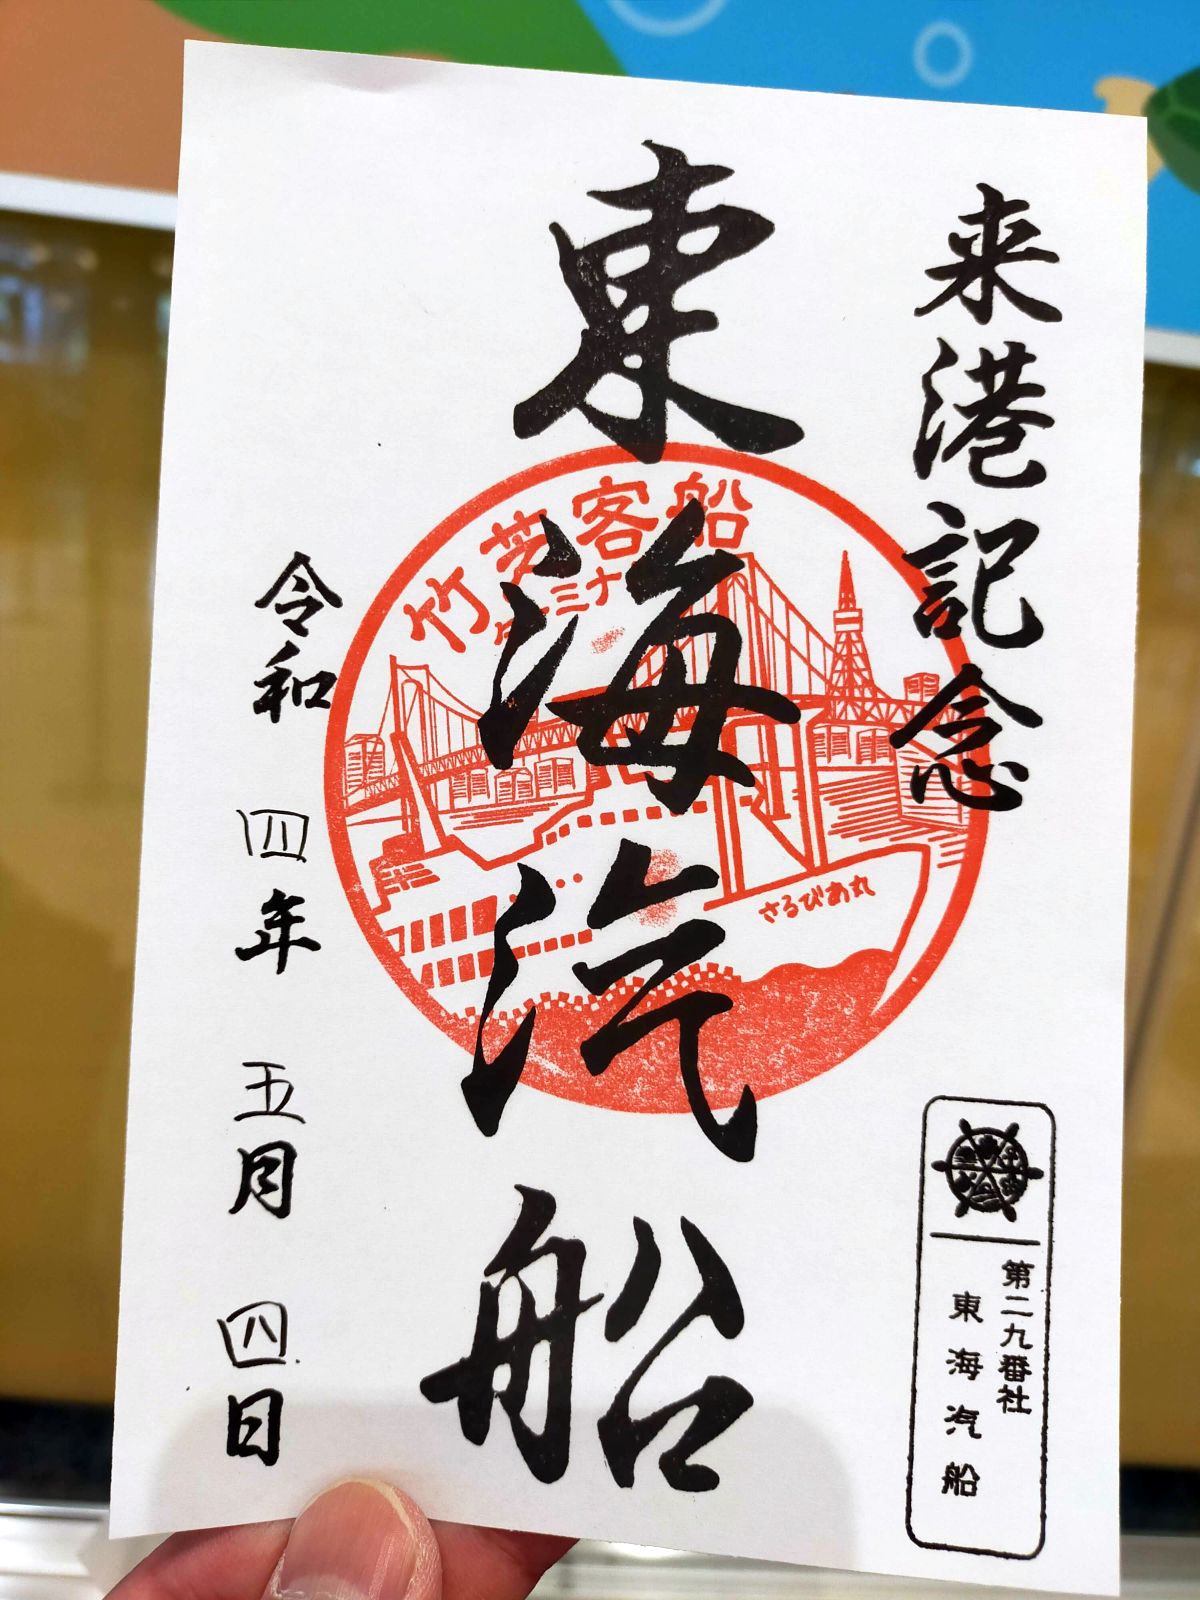 来港記念
東海汽船
竹芝客船
ターミナ
さるびあ丸
令和四年五月四日
第二九番社
東海汽船